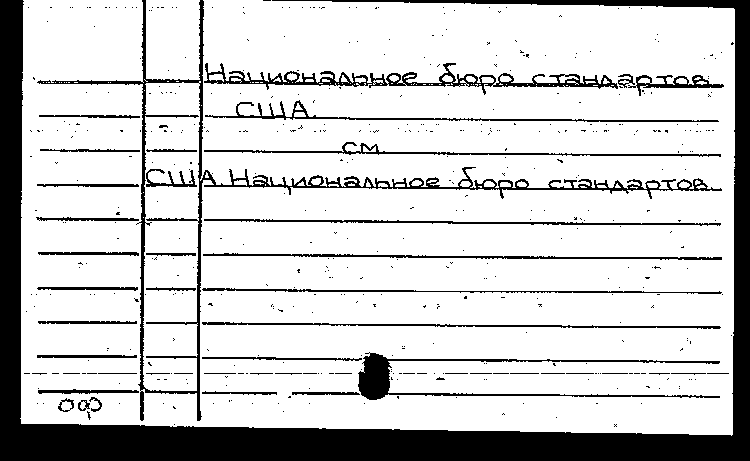 Национальное бюро стандартов
США.
см.
США. Национальное бюро стандартов.
ОФ